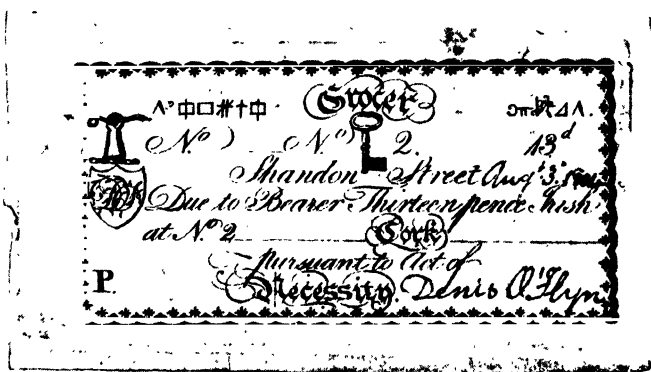 Grocer
Nº ) Nº 2. 13d
Shandon Street Aug' 3.
Due to Bearer Thirteen pence Irish
at Nº 2 Cork
pursuant to Act of
P. Necessity. Denis O'Flyn